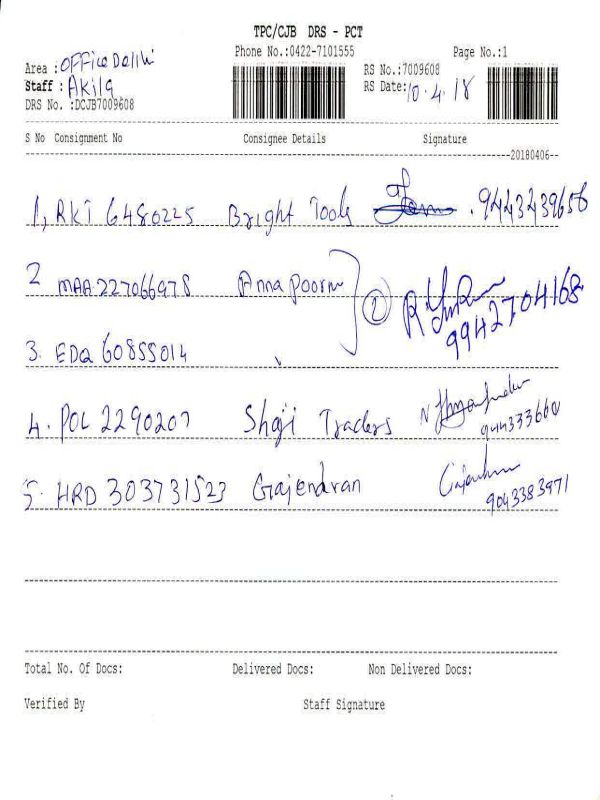 TPC/CJB DRS - PCT
Phone No.:0422-7101555 Page No.:1
Area : Office Delhi
RS No.:7009608
Staff : Akila
RS Date: 10.4.18
DRS No. :DCJB7009608
S No Consignment No Consignee Details Signature
20180406
1, RKT 6480225 Bright Tools 9443439656
2 MAA 227066978 Annapoorn 2
9942704168
3. EDQ 60855014 "
4. POL 2290207 Shaji Traders
944333660
5. HRD 303731523 Gajendran
9043383971
Total No. Of Docs: Delivered Docs: Non Delivered Docs:
Verified By Staff Signature